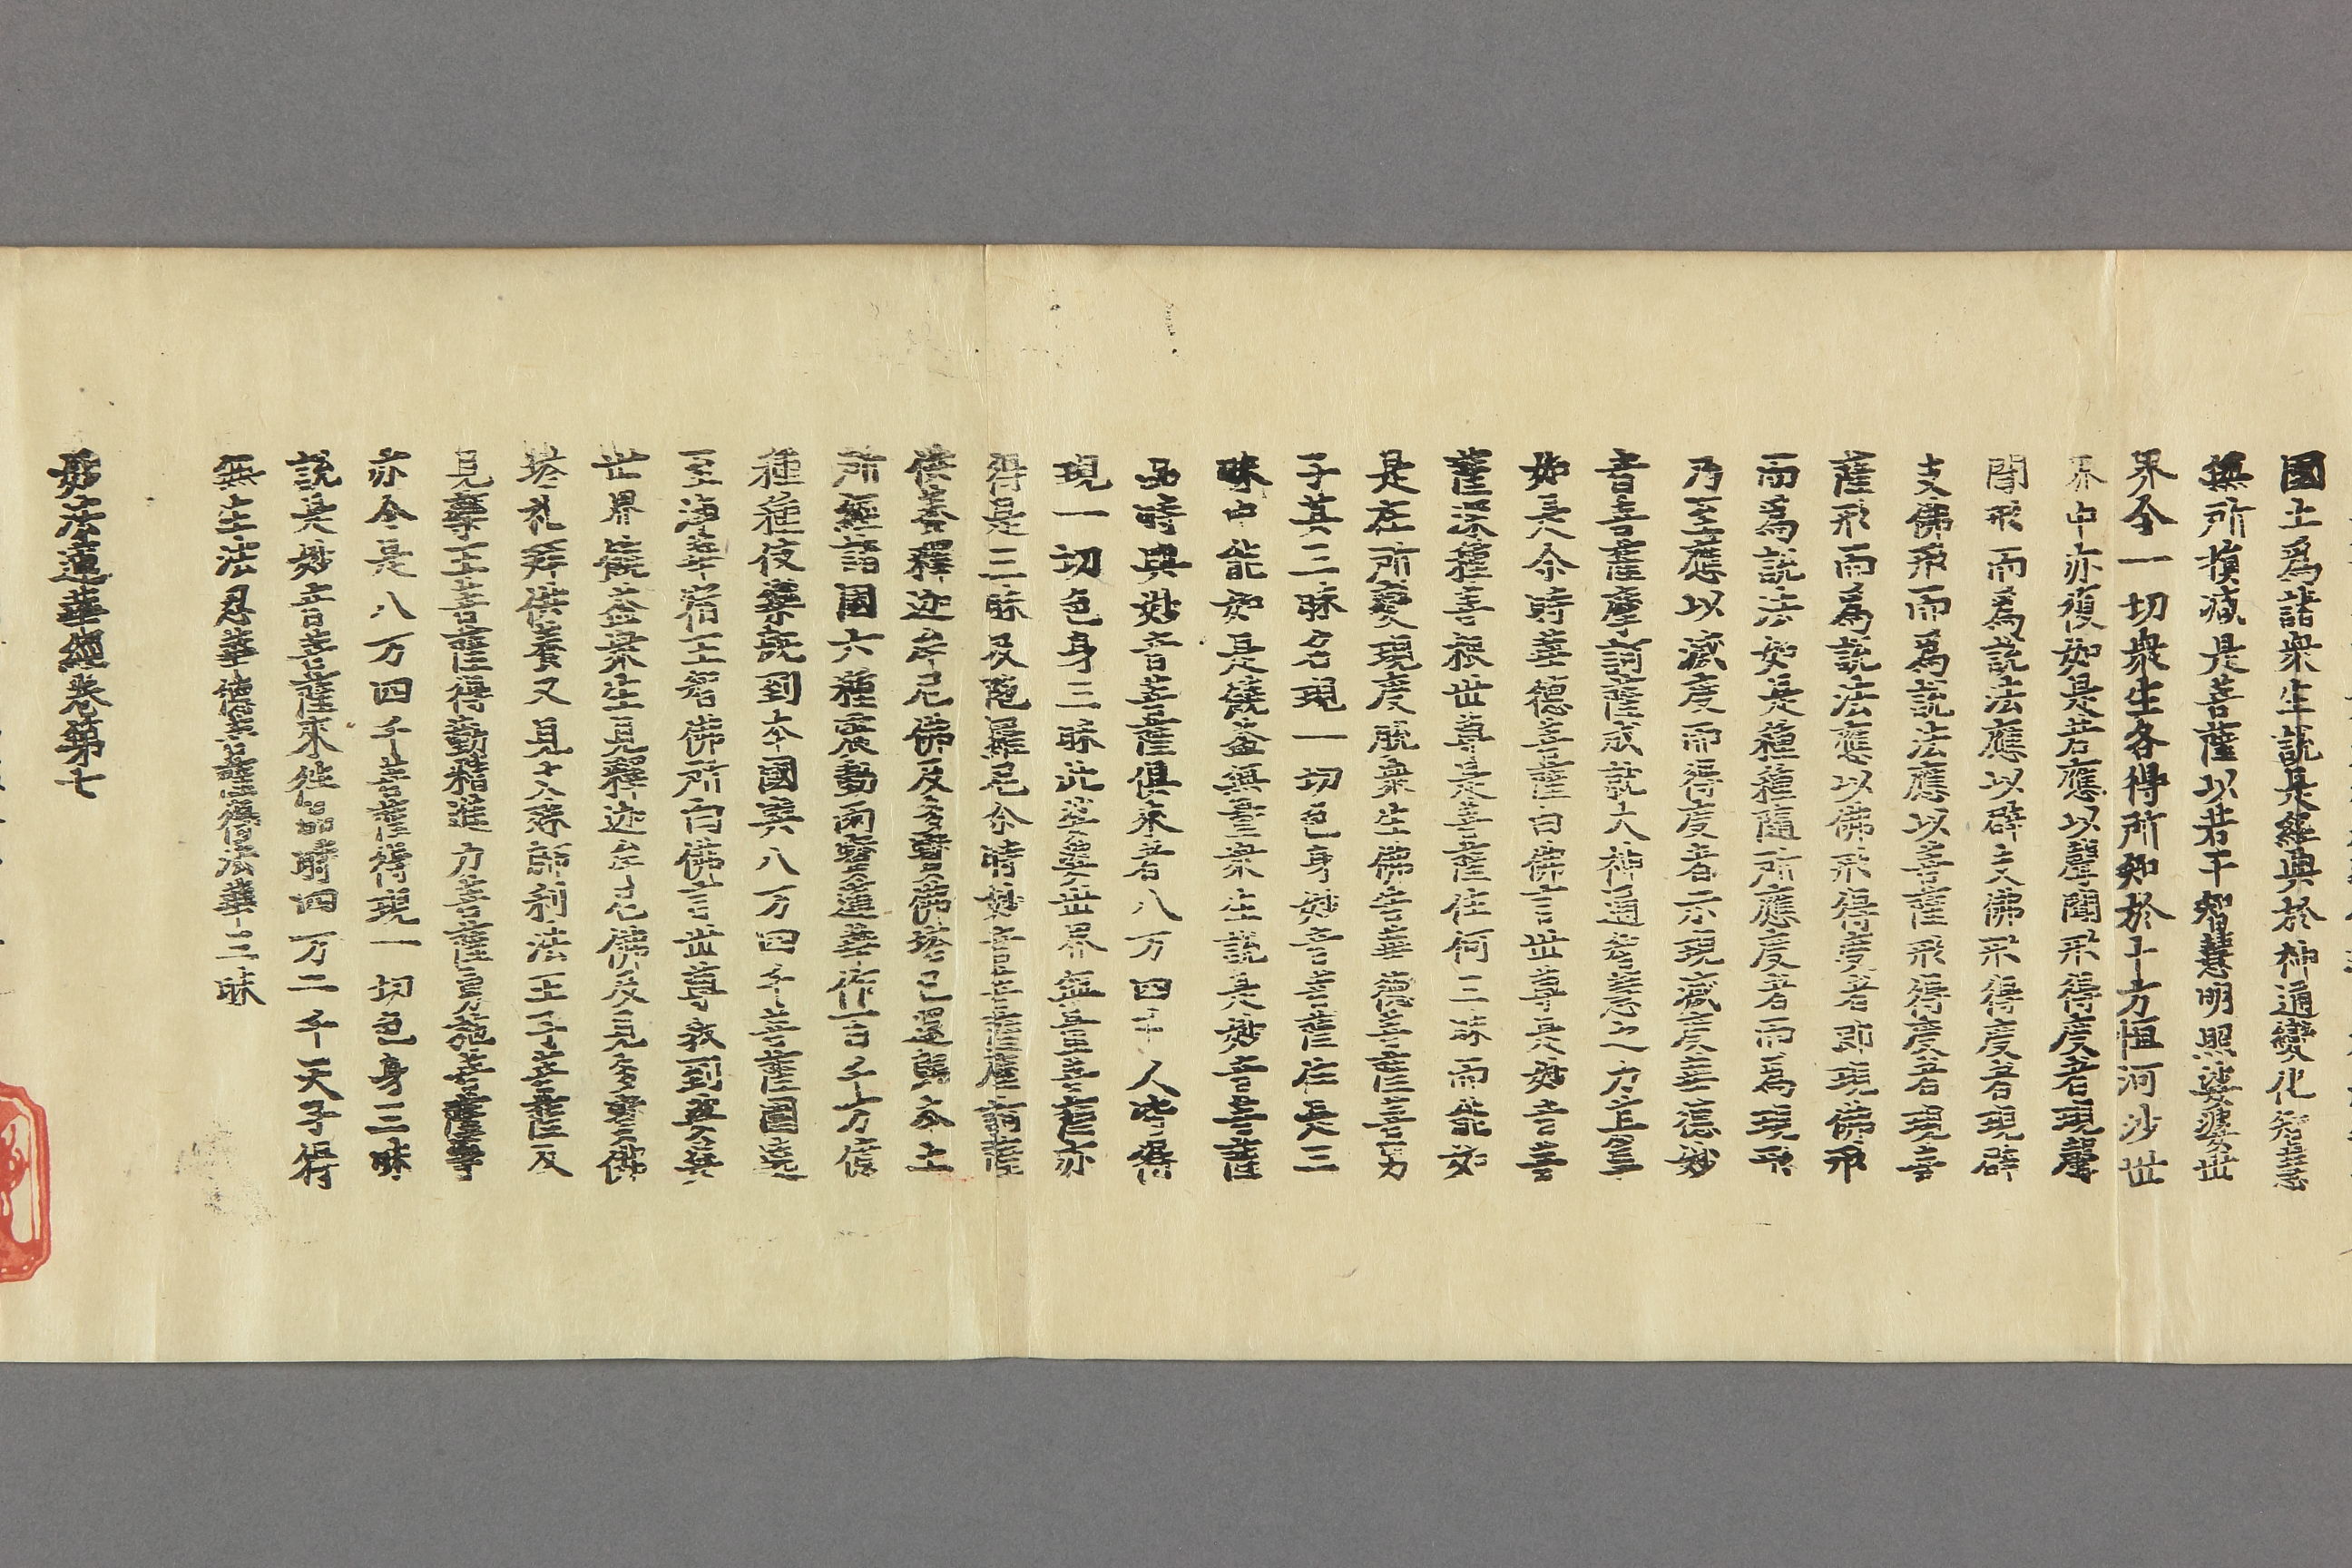 國土爲諸衆生說是經典於神通變化智慧
無所損減是菩薩以若干智慧明照娑婆世
界令一切衆生各得所知於十方恒河沙世
界中亦復如是若應以聲聞形得度者現聲
聞形而爲說法應以辟支佛形得度者現辟
支佛形而爲說法應以菩薩形得度者現菩
薩形而爲說法應以佛形得度者即現佛形
而爲說法如是種種隨所應度者而爲現形
乃至應以滅度而得度者示現滅度華德妙
音菩薩摩訶薩成就大神通智慧之力其事
如是尒時華德菩薩白佛言世尊是妙音菩
薩深種善根世尊是菩薩住何三昧而能如
是在所變現度脫衆生佛告華德菩薩善男
子其三昧名現一切色身妙音菩薩住是三
昧中能如是饒益無量衆生說是妙音菩薩
品時與妙音菩薩俱來者八万四千人皆得
現一切色身三昧此娑婆世界無量菩薩亦
得是三昧及陁羅尼尒時妙音菩薩摩訶薩
供養釋迦牟尼佛及多寶佛塔已還歸本土
所經諸國六種震動雨寶蓮華作百千万億
種種伎樂旣到本國與八万四千菩薩圍遶
至淨華宿王智佛所白佛言世尊我到娑婆
世界饒益衆生見釋迦牟尼佛及見多寶佛
塔礼拜供養又見文殊師利法王子菩薩及
見藥王菩薩得勤精進力菩薩勇施菩薩等
亦令是八万四千菩薩得現一切色身三昧
說是妙音菩薩來往品時四万二千天子得
無生法忍華德菩薩得法華三昧
妙法蓮華經卷第七